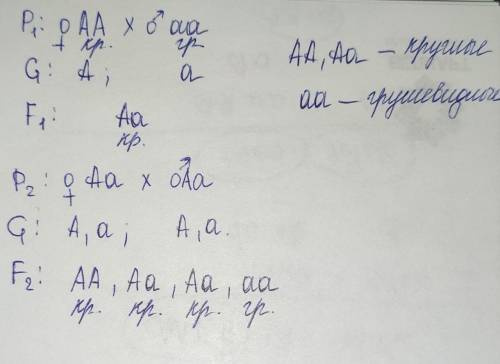 P₁: ♀ AA × ♂ aa
кр. гр.
G: A; a
F₁: Aa
кр.
AA, Aa – круглые
aa – грушевидные
P₂: ♀ Aa × ♂Aa
G: A, a; A, a.
F₂: AA, Aa, Aa, aa
кр. кр. кр. гр.